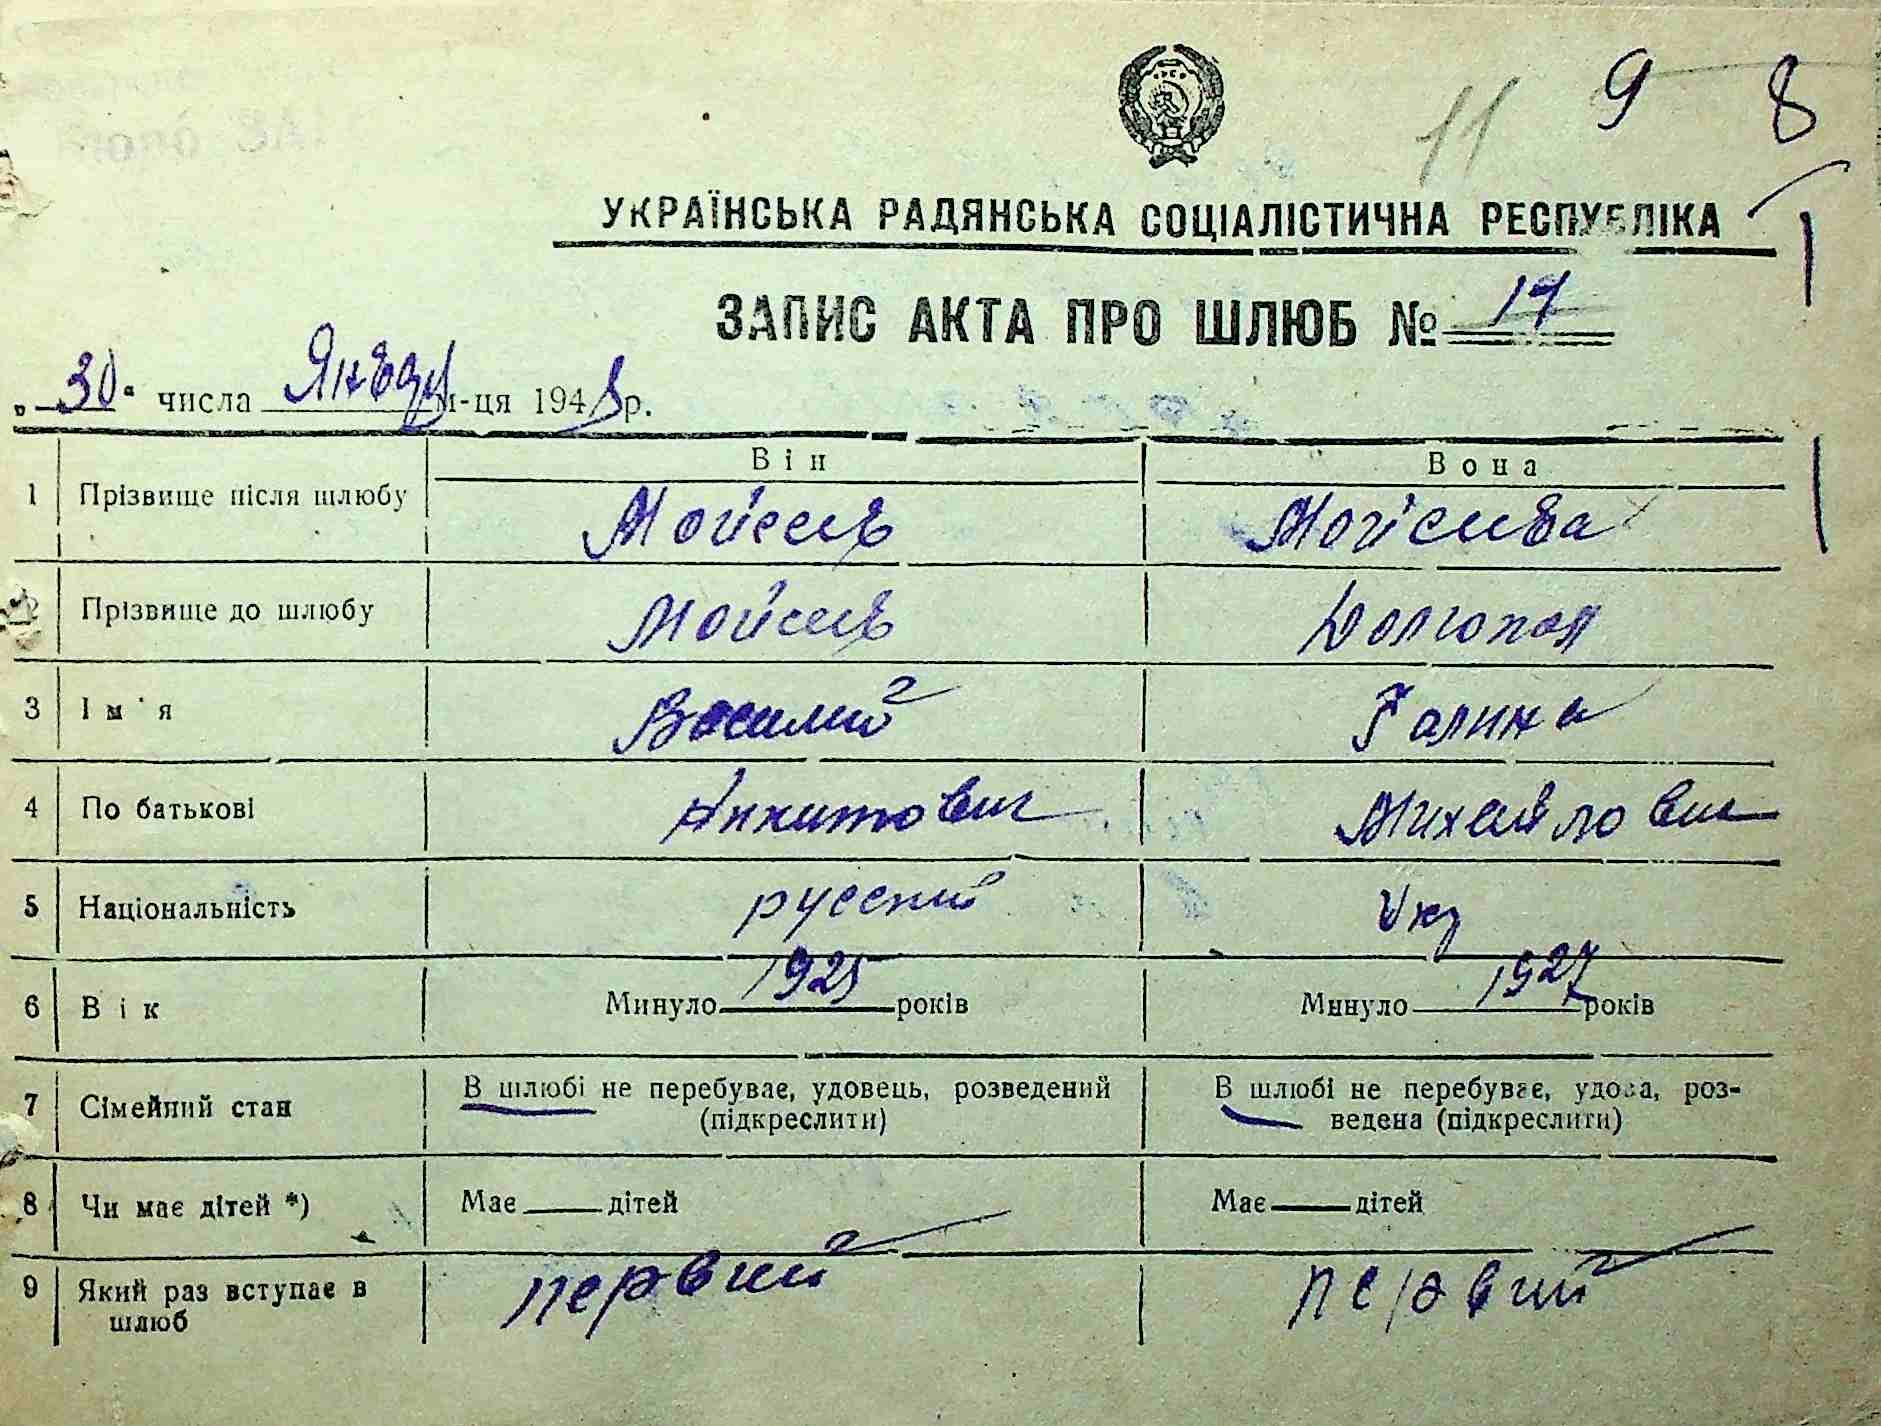 11 9 8
УКРАЇНСЬКА РАДЯНСЬКА СОЦІАЛІСТИЧНА РЕСПУБЛІКА
ЗАПИС АКТА ПРО ШЛЮБ №
„30“ числа м-ця 194 р.
Він Вона
1 Прізвище після шлюбу Мойсеев Мойсеева
2 Прізвище до шлюбу Мойсеев Долгопол
3 Ім'я Василий Галина
4 По батькові Никитович Михайлов
5 Національність русский Укр
6 Вік Минуло 1925 років Минуло 1927 років
7 Сімейний стан В шлюбі не перебуває, удовець, розведений В шлюбі не перебуває, удова, роз-
(підкреслити) ведена (підкреслити)
8 Чи має дітей *) Має — дітей Має — дітей
9 Який раз вступає в первий первий
шлюб